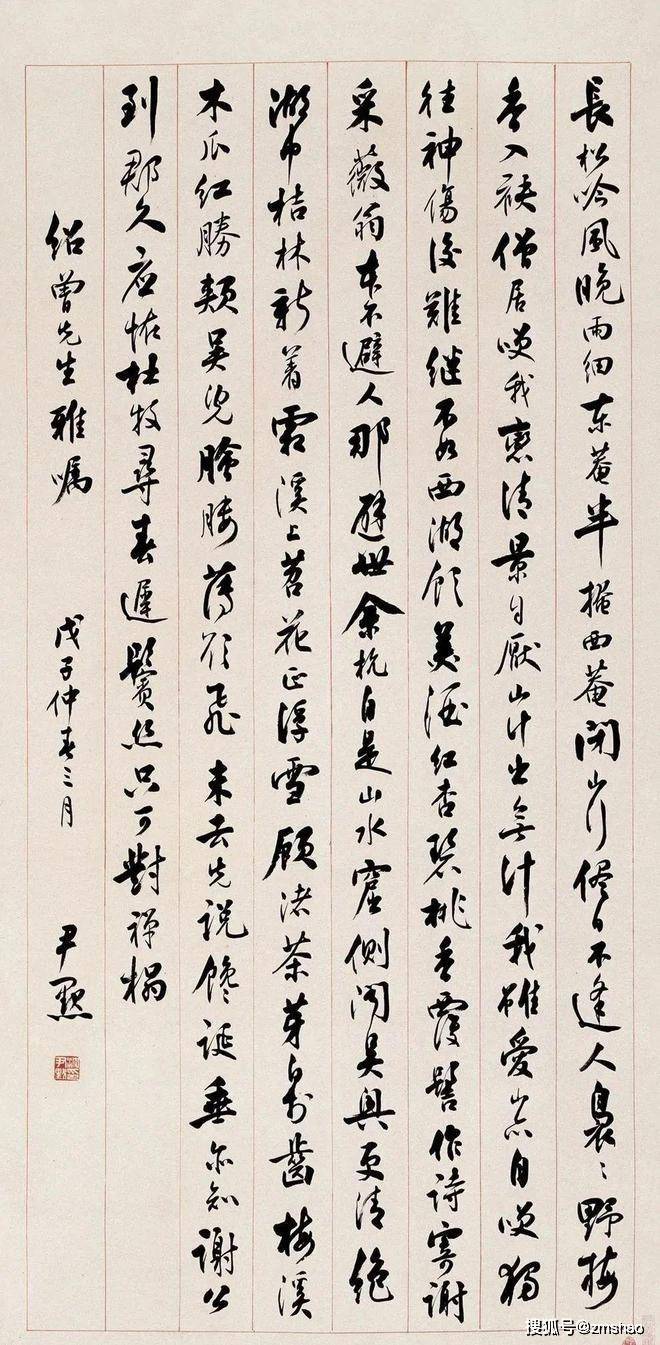 長松吟風晚雨細東菴半掩西菴閉山行儘日不逢人裊〻野梅
香入袂僧居笑我戀清景自厭山計出無計我雖愛山亦自笑獨
往神傷後難継不如西湖飲美酒紅杏碧桃香覆髻作詩寄謝
采薇翁本不避人那避世余杭自是山水窟側聞吳興更清絶
湖中桔林新著霜溪上苕花正浮雪顧渚茶芽白於齒梅溪
木瓜紅勝頰吳兒膾縷薄欲飛未去先説饞涎垂亦知謝公
到郡久應怪杜牧尋春遲鬢絲只可對禪榻
紹曾先生雅嘱 戊子仲春三月 尹默
搜狐号@zmshao